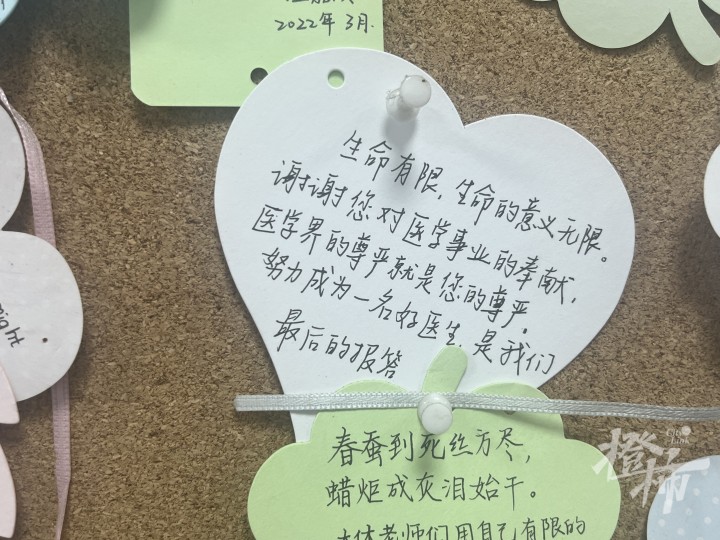 2022年3月.
生命有限,生命的意义无限。
谢谢您对医学事业的奉献,
医学界的尊严就是您的尊严。
努力成为一名好医生,是我们
最后的报答
春蚕到死丝方尽,
蜡炬成灰泪始干。
大体老师们用自己有限的
橙柿